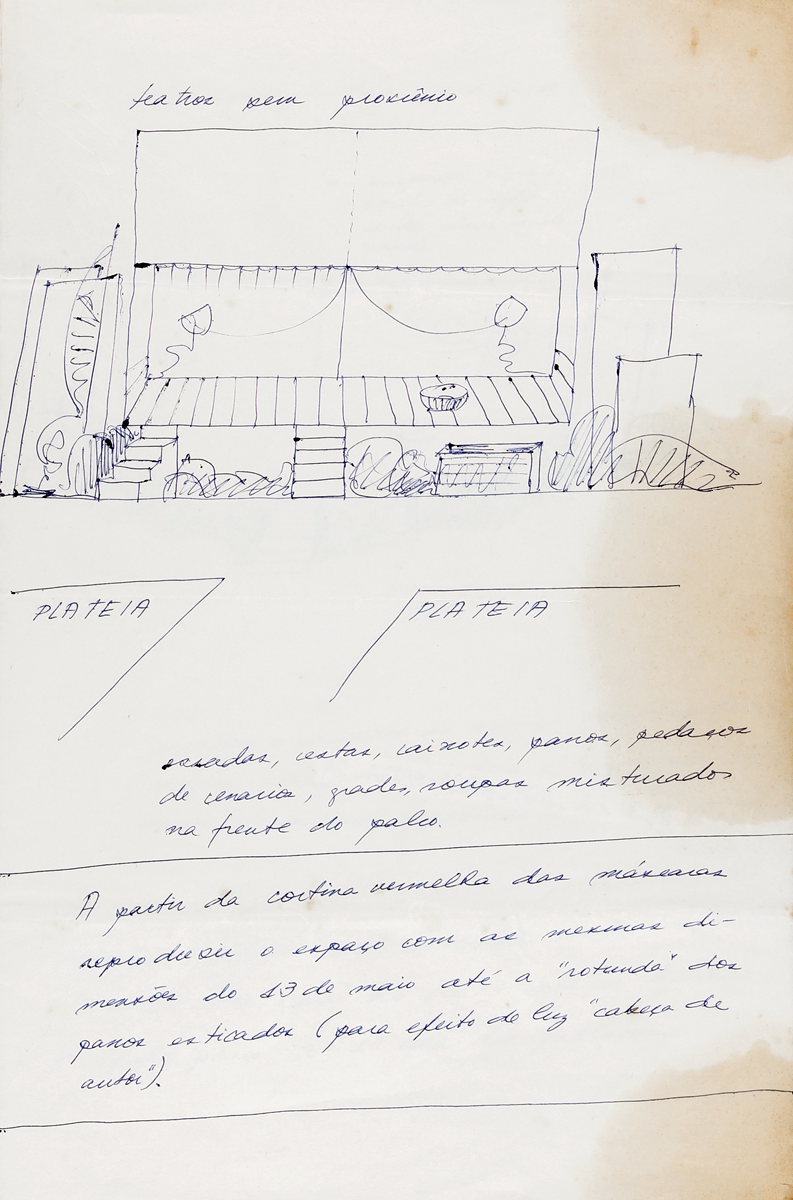 teatros sem proscênio
PLATEIA
PLATEIA
escadas, cestas, caixotes, panos, pedaços
de cenarios, grades, roupas misturados
na frente do palco.
A partir da cortina vermelha das máscaras
reproduzir o espaço com as mesmas di-
mensões do 13 de maio até a "rotunda" dos
panos esticados (para efeito de luz "cabeça de
autor").